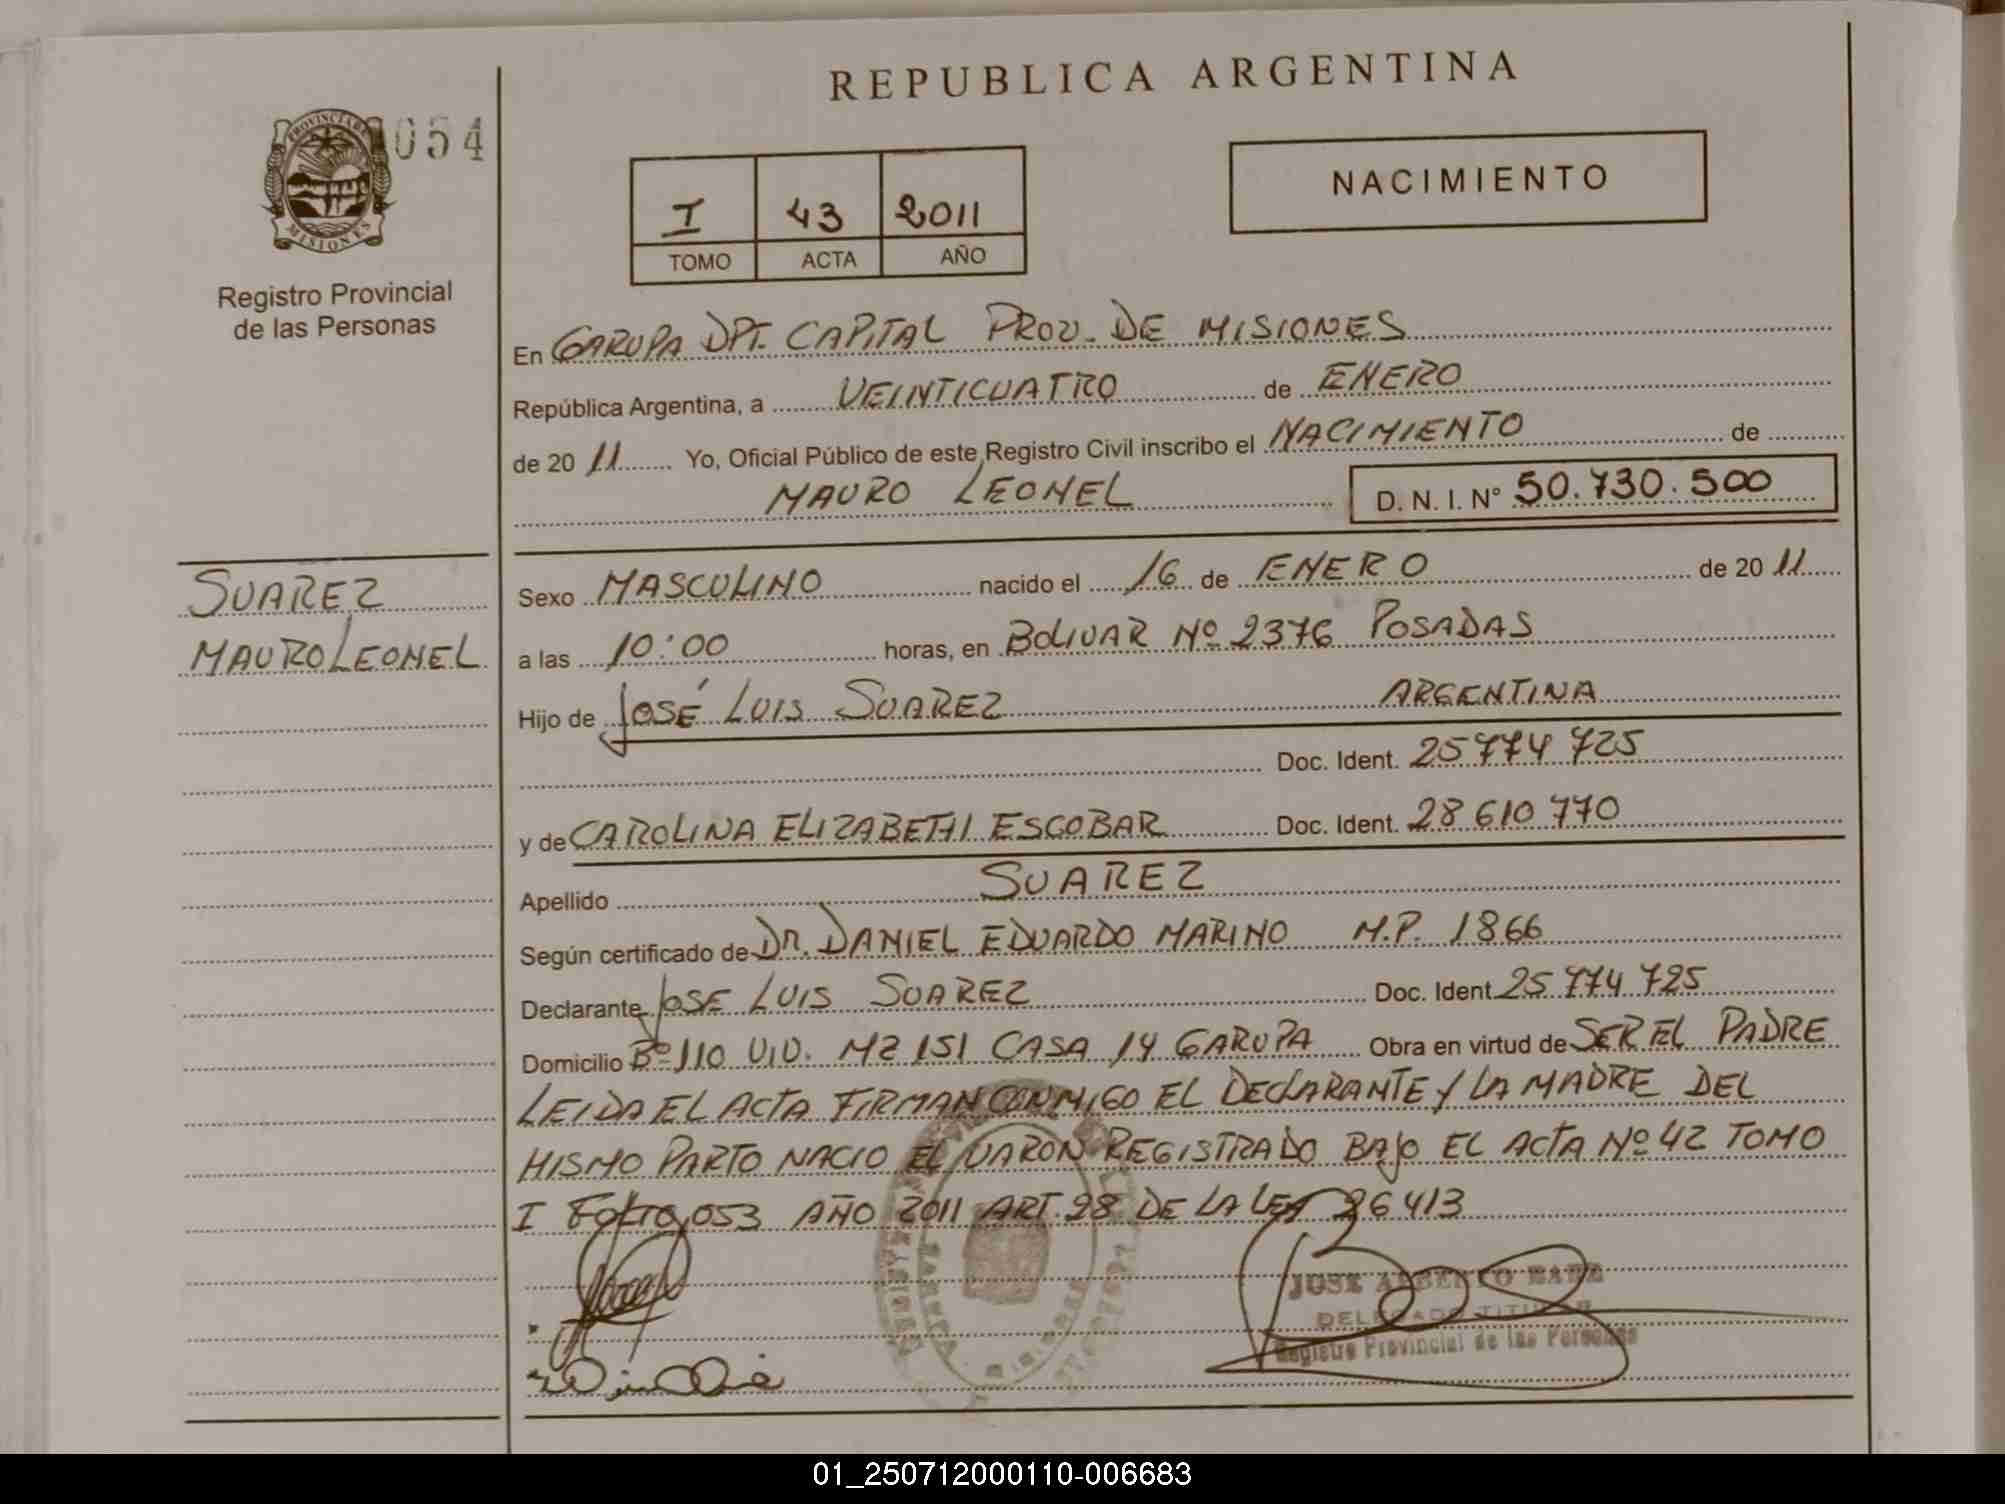 REPUBLICA ARGENTINA
PROVINCIA DE MISIONES
054
Registro Provincial
de las Personas
I 43 2011
TOMO ACTA AÑO
NACIMIENTO
En GARUPA DPT. CAPITAL PROV. DE MISIONES
República Argentina, a VEINTICUATRO de ENERO
de 20 11 Yo, Oficial Público de este Registro Civil inscribo el NACIMIENTO de
MAURO LEONEL D. N. I. N° 50.730.500
SUAREZ
MAURO LEONEL
Sexo MASCULINO nacido el 16 de ENERO de 20 11
a las 10:00 horas, en BOLIVAR Nº 2376 POSADAS
Hijo de JOSÉ LUIS SUAREZ ARGENTINA
Doc. Ident. 25 774 725
y de CAROLINA ELIZABETH ESCOBAR Doc. Ident. 28 610 770
Apellido SUAREZ
Según certificado de DR. DANIEL EDUARDO MARINO M.P. 1866
Declarante JOSE LUIS SUAREZ Doc. Ident 25 774 725
Domicilio Bº 110 VIV. MZ 151 CASA 14 GARUPA Obra en virtud de SER EL PADRE
LEIDA EL ACTA FIRMAN CONMIGO EL DECLARANTE Y LA MADRE DEL
MISMO PARTO NACIO EL VARON REGISTRADO BAJO EL ACTA Nº 42 TOMO
I FOLIO 053 AÑO 2011 ART. 28 DE LA LEY 26413
JOSE ALBERTO
DELEGADO TITULAR
Registro Provincial de las Personas
01_250712000110-006683